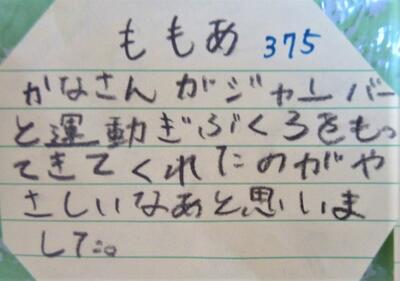 ももあ 375
かなさんがジャーバー
と運動ぎぶくろをもっ
てきてくれたのがや
さしいなあと思いま
した。